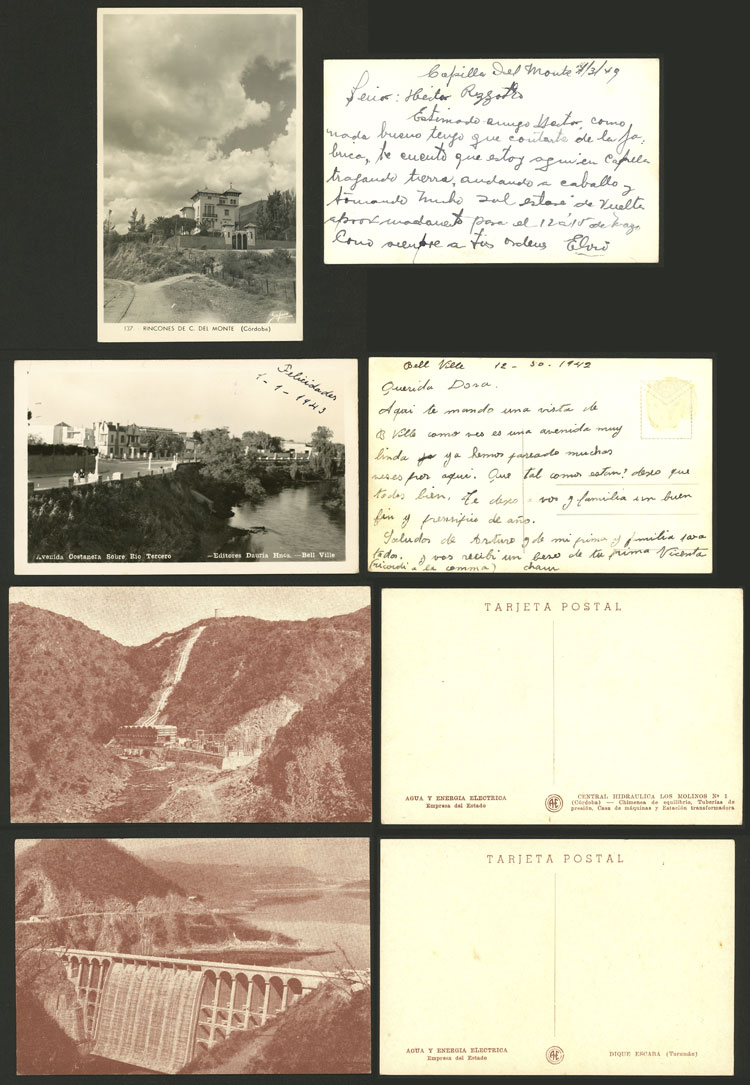 137 RINCONES DE C. DEL MONTE (Córdoba)
Capilla Del Monte 4/3/49
Señor: Héctor
Estimado amigo Hector, como
nada bueno tengo que contarte de la fa-
brica, te cuento que estoy aqui en Capilla
tragando tierra, andando a caballo y
tomando mucho sol estaré de vuelta
aproximadamente para el 12 á 15 de
Como siempre a tus ordenes Elvio
Felicidades
1-1-1943
Avenida Costanera Sobre Rio Tercero —Editores Dauria Hnos. —Bell Ville
Bell Ville 12-30-1942
Querida Dora.
Aqui te mando una vista de
B Ville como ves es una avenida muy
linda ya hemos paseado muchas
veses por aqui. Que tal como estan? deseo que
todos bien. Te deseo a vos y familia un buen
fin y prensipio de año.
Saludos de Arturo y de mi prima y familia para
todos. y vos recibi un beso de tu prima Vicenta
(ricordi a la comma) chau
TARJETA POSTAL
AGUA Y ENERGIA ELECTRICA
Empresa del Estado
AE
CENTRAL HIDRAULICA LOS MOLINOS Nº 1
(Córdoba) — Chimenea de equilibrio, Tuberías de
presión, Casa de máquinas y Estación transformadora
TARJETA POSTAL
AGUA Y ENERGIA ELECTRICA
Empresa del Estado
AE
DIQUE ESCABA (Tucumán)